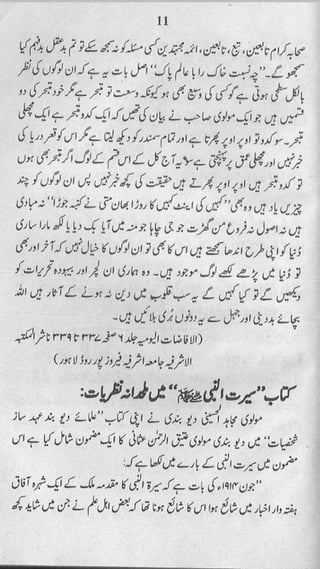 11
صحابہ کرام تابعین، تبع، تابعین، ائمہ مجتہدین کسی مسئلہ کو نہ سمجھ سکے تو تم بد عقل بدفہم کیا
سمجھو گے۔ "چہ نسبت خاک را با عالم پاک" اصل بات یہ ہے کہ ان لوگوں کی نظر
بالکل سطحی ہوتی ہے گو کسی کی وسیع بھی ہو کیونکہ وسعت تو تبحر ہے مگر خود تبحر کی دو
قسمیں ہیں جو ایک مولوی صاحب نے بیان کی تھیں کہ ایک کدو تبحر ہے ایک مچھلی
تبحر۔ سو کدو تو اوپر اوپر پھرتا ہے اور تمام سمندر کو دیکھ لیتا ہے مگر اس کو قعر دریا کی
خبر نہیں اور مچھلی عمق پر پہنچتی ہے سو یہ آج کل کے اس قسم کے لوگ اگر تبحر بھی ہوں
تو کدو تبحر ہیں اوپر اوپر پھرتے ہیں حقیقت کی کچھ خبر نہیں پس ان لوگوں کو چند
چیزیں یاد ہیں وہ بھی "کہیں کی اینٹ کہیں کا روڑا بھان متی نے کنبہ جوڑا" نہ مبادی
ہیں نہ اصول نہ فروع من گھڑت جو جی چاہا جو منہ میں آیا بک دیا یا لکھ مارا ساری
دنیا کو اپنی طرح اندھا سمجھتے ہیں اس کا بھی تو ان لوگوں کا خیال نہیں کہ آخر اور بھی
تو دنیا میں پڑھے لکھے لوگ موجود ہیں۔ وہ ہماری ان لچر اور بیہودہ تحریرات کو
دیکھیں گے تو کیا کہیں گے یہ سب قلوب میں دین نہ ہونے کے آثار ہیں اللہ
بچائے بددینی اور جہل سے یہ دونوں بُری بلائیں ہیں۔
(الافاضات الیومیہ جلد ۶ صفحہ ۳۳۷ تا ۳۳۹ ناشر المکتبۃ
الاشرفیہ جامعہ اشرفیہ فیروز پور روڈ لاہور)
کتاب "سیرت النبی ﷺ" میں ملحدانہ نظریات:
مولوی مجاہد الحسینی دیو بندی نے اپنی کتاب "علمائے دیو بند عہد ساز
شخصیات" میں دیو بندی مولوی عتیق الرحمٰن عثمانی کا ایک مضمون شامل کیا ہے اس
مضمون میں سیرت النبی کے بارے میں لکھا ہے کہ:
"جون ۱۹۱۴ء کی بات ہے کہ سیرۃ النبی کا مقدمہ ملک کے ایک شہرہ آفاق
ہفتہ وار اخبار میں شائع ہوا اس کا شائع ہونا تھا کہ بعض اہل علم نے جن میں شاید کچھ